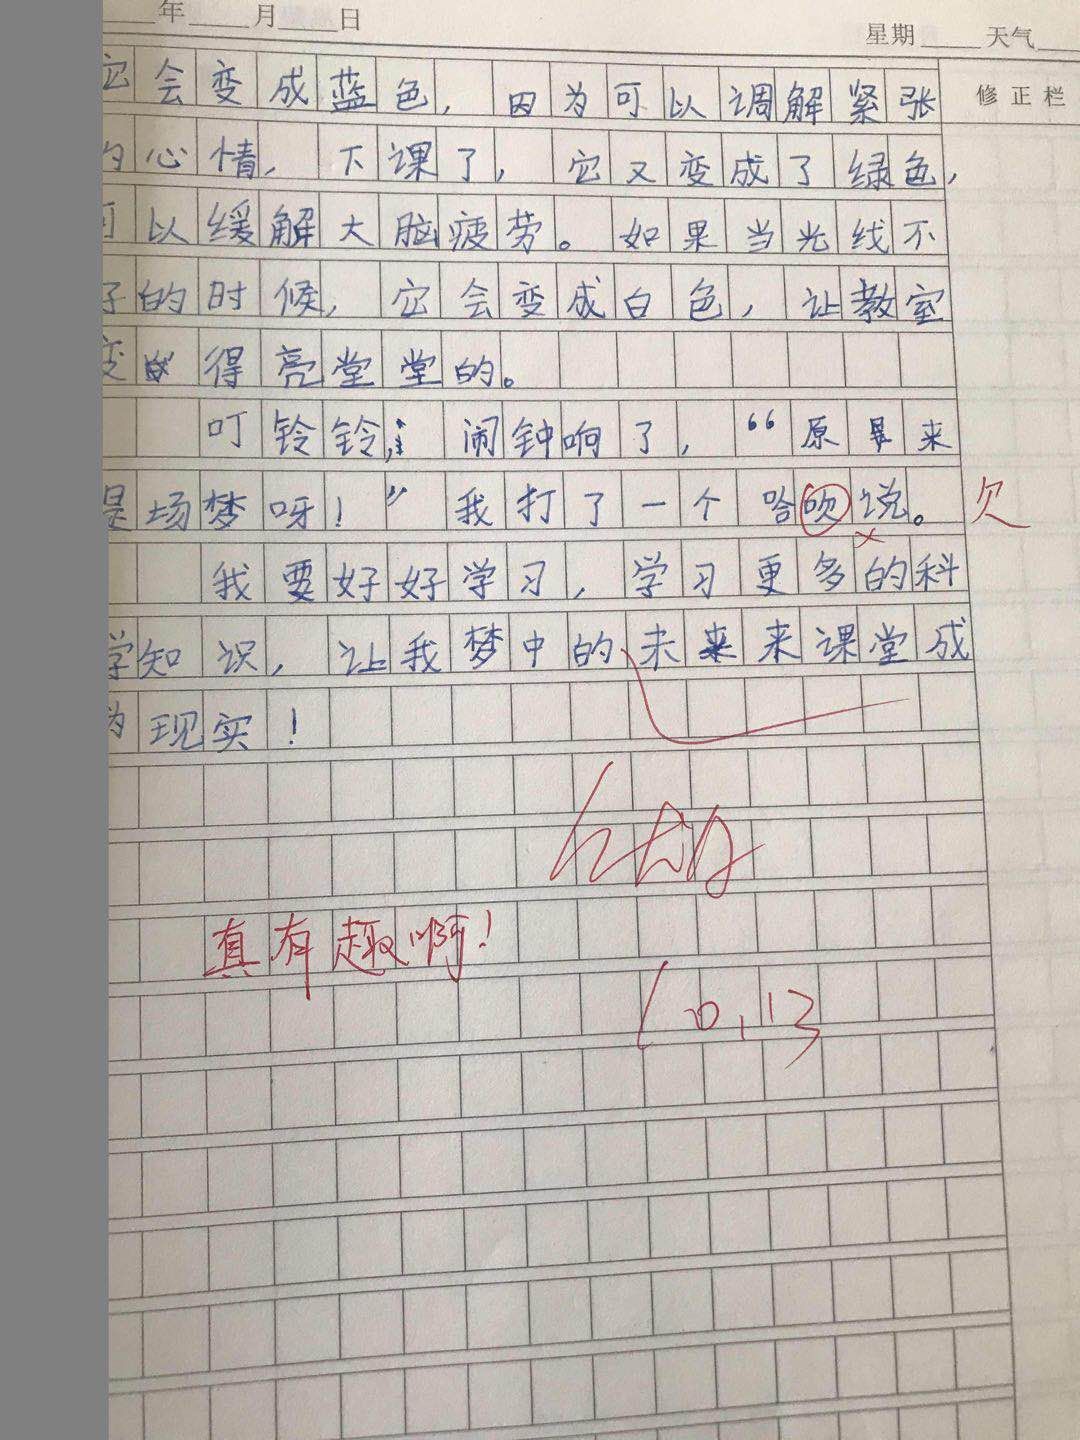 年 月 日
星期 天气
修正栏
它会变成蓝色，因为可以调解紧张
的心情，下课了，它又变成了绿色，
可以缓解大脑疲劳。如果当光线不
好的时候，它会变成白色，让教室
变得亮堂堂的。
叮铃铃，闹钟响了，“原来
是场梦呀！”我打了一个哈吹说。
欠
我要好好学习，学习更多的科
学知识，让我梦中的未来课堂成
为现实！
真有趣啊！
10.13